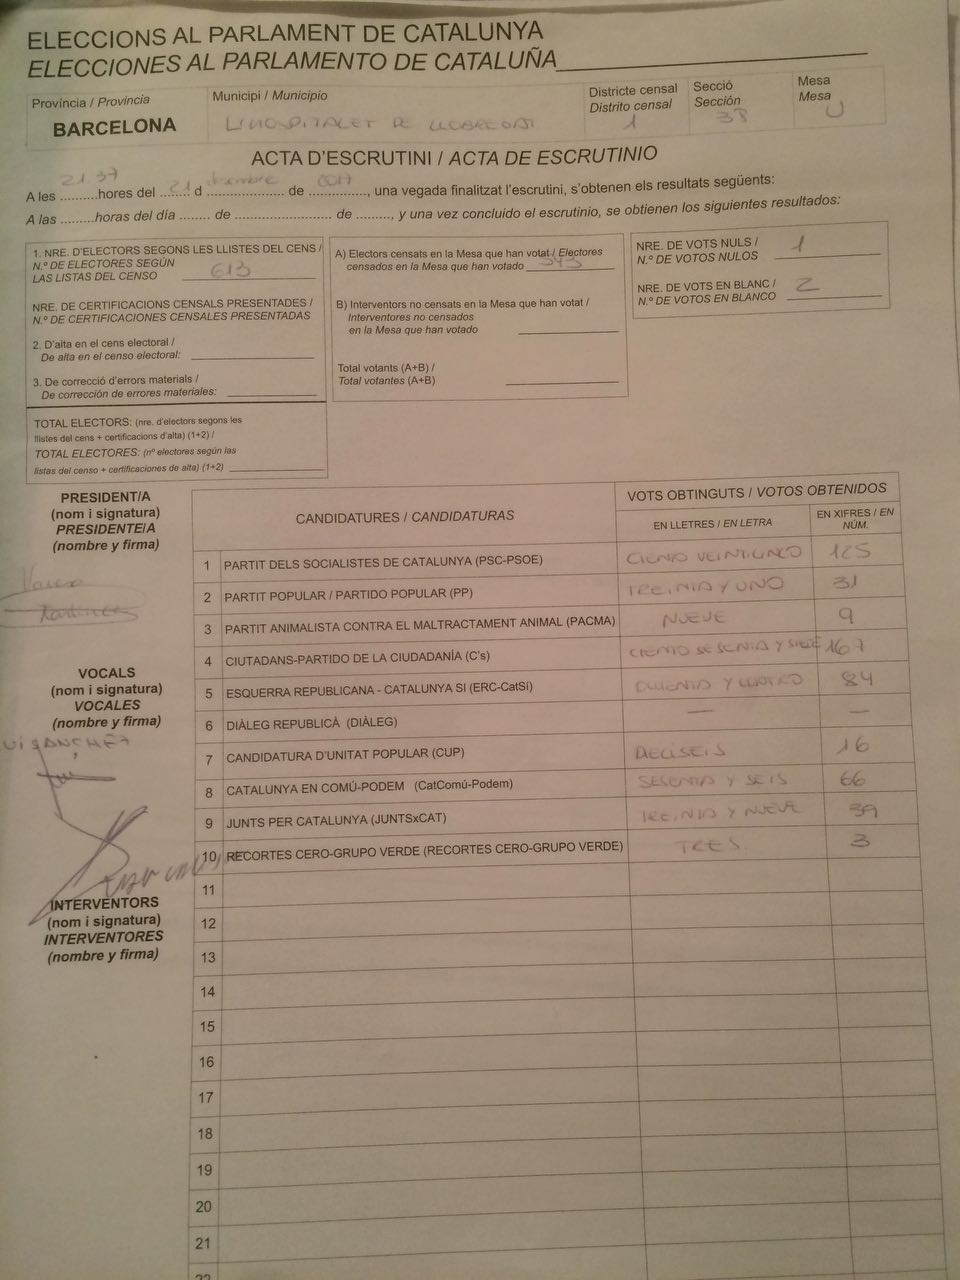 ELECCIONS AL PARLAMENT DE CATALUNYA
ELECCIONES AL PARLAMENTO DE CATALUÑA
Província / Provincia
BARCELONA
Municipi / Municipio
L'HOSPITALET DE LLOBREGAT
Districte censal
Distrito censal
1
Secció
Sección
33
Mesa
Mesa
U
ACTA D'ESCRUTINI / ACTA DE ESCRUTINIO
A les 21.37 hores del 21 d de 2017, una vegada finalitzat l'escrutini, s'obtenen els resultats següents:
A las ......... horas del día ........ de ........................ de ........., y una vez concluido el escrutinio, se obtienen los siguientes resultados:
1. NRE. D'ELECTORS SEGONS LES LLISTES DEL CENS /
N.º DE ELECTORES SEGÚN
LAS LISTAS DEL CENSO 613
NRE. DE CERTIFICACIONS CENSALS PRESENTADES /
N.º DE CERTIFICACIONES CENSALES PRESENTADAS
2. D'alta en el cens electoral /
De alta en el censo electoral:
3. De correcció d'errors materials /
De corrección de errores materiales:
TOTAL ELECTORS: (nre. d'electors segons les
llistes del cens + certificacions d'alta) (1+2) /
TOTAL ELECTORES: (nº electores según las
listas del censo + certificaciones de alta) (1+2)
A) Electors censats en la Mesa que han votat / Electores
censados en la Mesa que han votado 543
B) Interventors no censats en la Mesa que han votat /
Interventores no censados
en la Mesa que han votado
Total votants (A+B) /
Total votantes (A+B)
NRE. DE VOTS NULS /
N.º DE VOTOS NULOS 1
NRE. DE VOTS EN BLANC /
N.º DE VOTOS EN BLANCO 2
PRESIDENT/A
(nom i signatura)
PRESIDENTE/A
(nombre y firma)
VOCALS
(nom i signatura)
VOCALES
(nombre y firma)
INTERVENTORS
(nom i signatura)
INTERVENTORES
(nombre y firma)
CANDIDATURES / CANDIDATURAS
VOTS OBTINGUTS / VOTOS OBTENIDOS
EN LLETRES / EN LETRA
EN XIFRES / EN NÚM.
1 PARTIT DELS SOCIALISTES DE CATALUNYA (PSC-PSOE) CIENTO VEINTICINCO 125
2 PARTIT POPULAR / PARTIDO POPULAR (PP) TREINTA Y UNO 31
3 PARTIT ANIMALISTA CONTRA EL MALTRACTAMENT ANIMAL (PACMA) NUEVE 9
4 CIUTADANS-PARTIDO DE LA CIUDADANÍA (C's) CIENTO SESENTA Y SIETE 167
5 ESQUERRA REPUBLICANA - CATALUNYA SI (ERC-CatSí) OCHENTA Y CUATRO 84
6 DIÀLEG REPUBLICÀ (DIÀLEG) — —
7 CANDIDATURA D'UNITAT POPULAR (CUP) DIECISEIS 16
8 CATALUNYA EN COMÚ-PODEM (CatComú-Podem) SESENTA Y SEIS 66
9 JUNTS PER CATALUNYA (JUNTSxCAT) TREINTA Y NUEVE 39
10 RECORTES CERO-GRUPO VERDE (RECORTES CERO-GRUPO VERDE) TRES 3
11
12
13
14
15
16
17
18
19
20
21
22